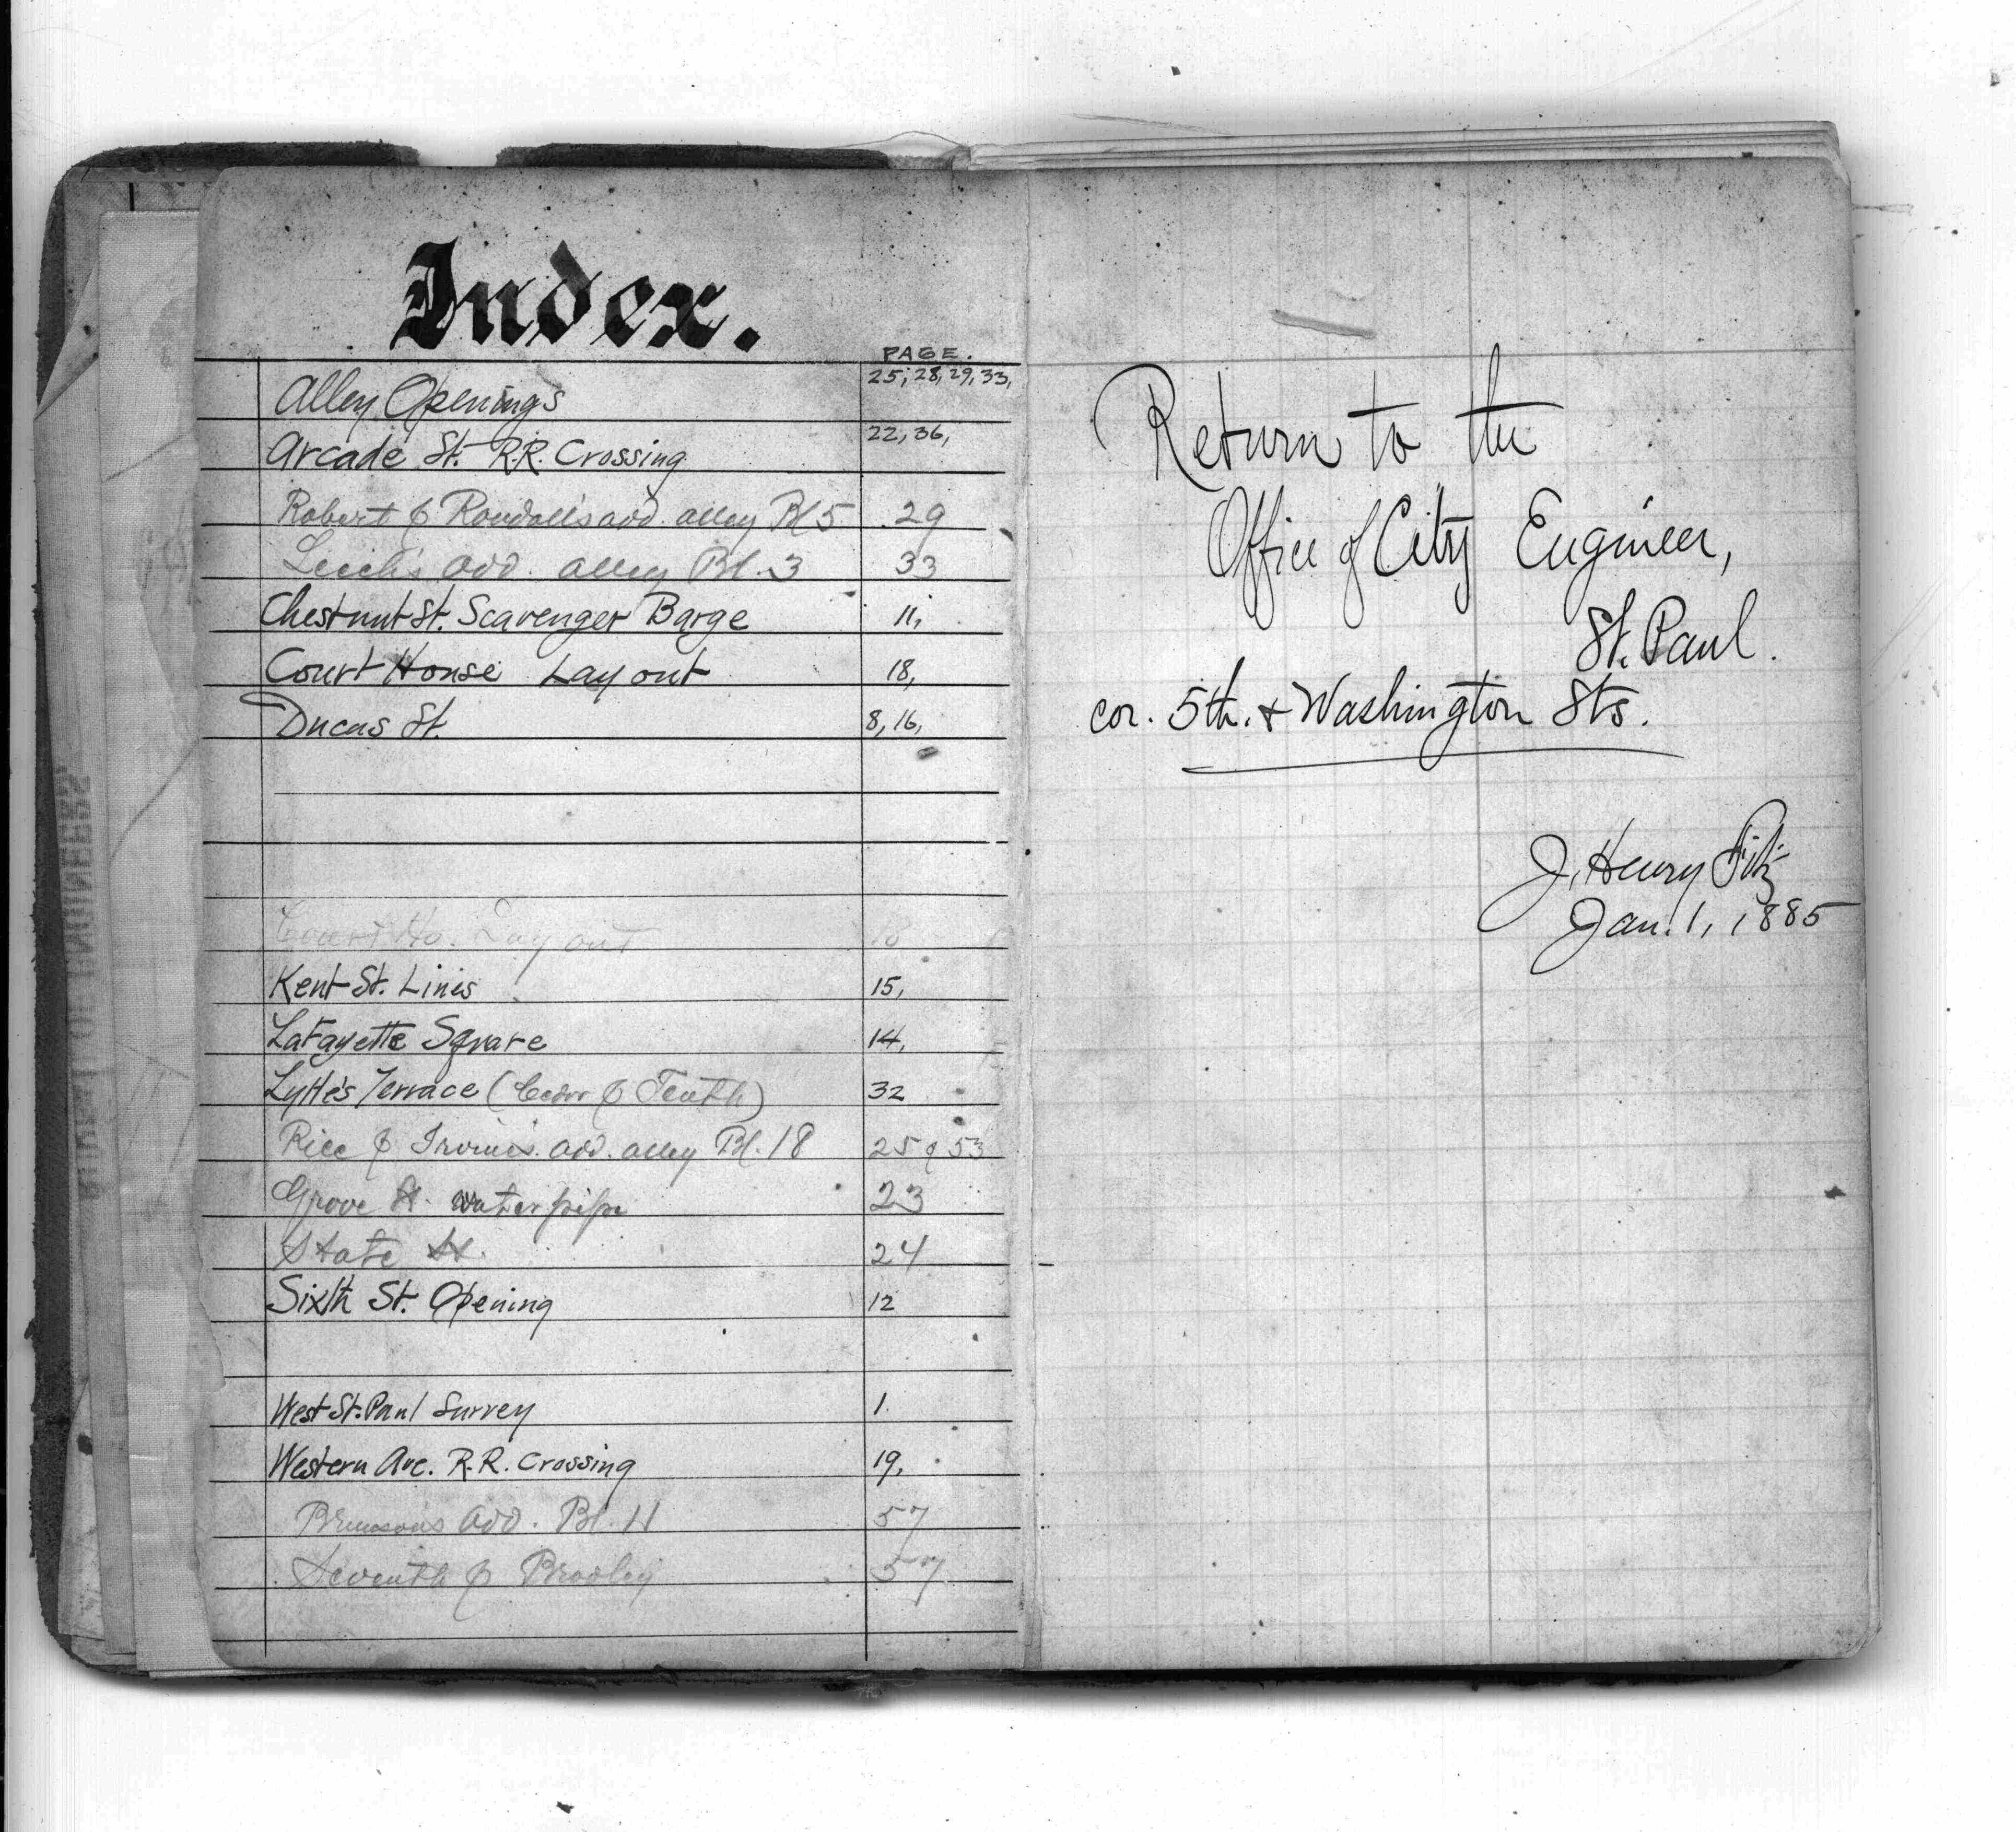 Index.
PAGE.
Alley Openings 25, 28, 29, 33,
Arcade St. R.R. Crossing 22, 36,
Robert & Randall's add. alley Bl 5 29
Leech's add. alley Bl. 3 33
Chestnut St. Scavenger Barge 11,
Court House Lay out 18,
Ducas St. 8, 16,
Court Ho. Lay out 18
Kent St. Lines 15,
LaFayette Square 14,
Lytte's Terrace (Cedar & Tenth) 32
Rice & Irvine's add. alley Bl. 18 25 & 53
Grove St. water pipe 23
State St. 24
Sixth St. Opening 12
West St. Paul Survey 1.
Western Ave. R.R. Crossing 19,
Brunson's add. Bl. 57
Seventh & Bradley 57
Return to the
Office of City Engineer,
St. Paul.
cor. 5th. & Washington Sts.
J. Henry Fitz
Jan. 1, 1885